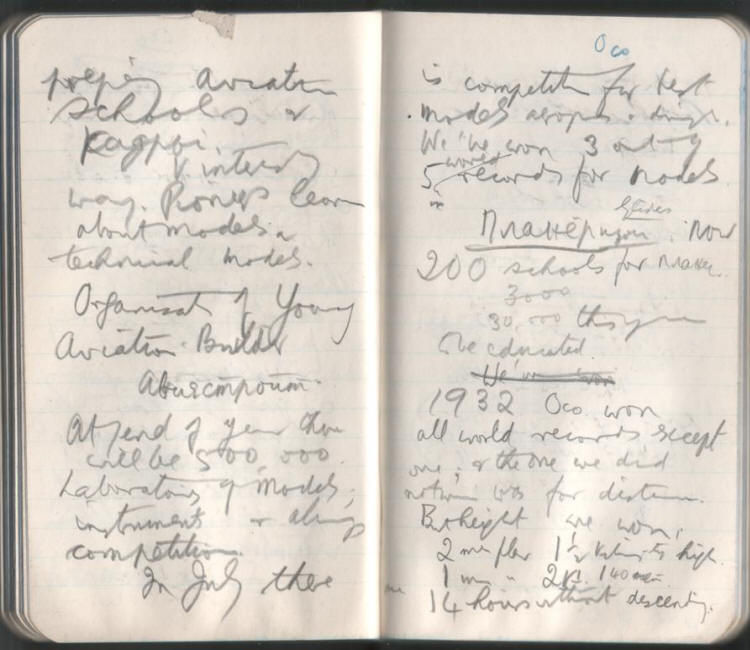 aviation
schools &
кадры.
V interesting
way. Pioneers learn
about models &
technical models.
Organisat of Young
Aviation Builder
Авиастроит.
At end of year there
will be 500,000.
Laboratory of models,
instruments & always
competition.
In July there
Oso
is competition for best
models
We've won 3 out of
world
5 records for models.
Gliders
Планёризм. Now
200 schools for план.
3000
30,000 this year
be educated.
We've won
1932 Oso won
all world records except
one; & the one we did
not win was for distance.
But height we won,
2 1½ high.
1 2 140
14 hours without descending.